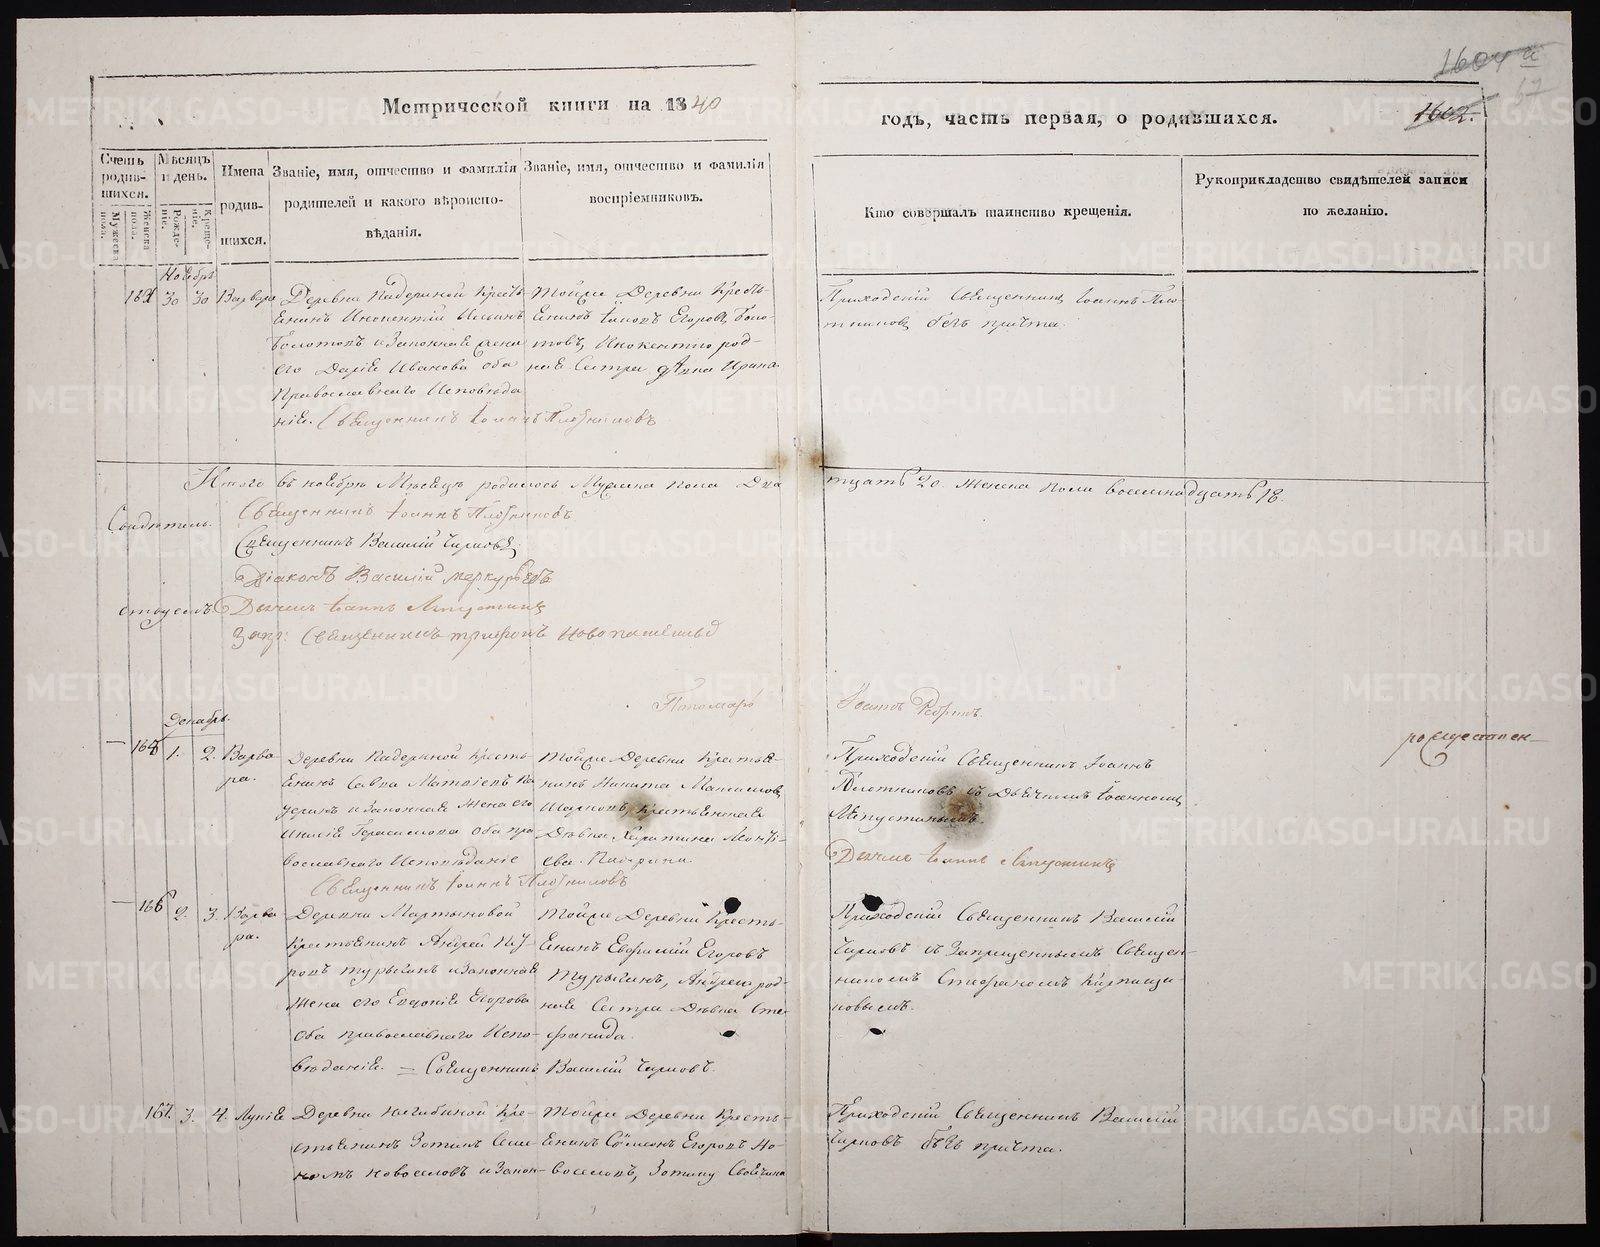 1604 и
67
Метрической книги на 1840
годъ, часть первая, о родившихся.
1602.
Счетъ родив-шихся.
Мужеска пола.
Женска пола.
Мѣсяцъ и день.
Рожде-ніе.
Креще-ніе.
Имена
родив-
шихся.
Званіе, имя, отчество и фамилія
родителей и какого вѣроиспо-
вѣданія.
Званіе, имя, отчество и фамилія
воспріемниковъ.
Кто совершалъ таинство крещенія.
Рукоприкладство свидѣтелей записи
по желанію.
Ноебрь
30 30 Варвара
Деревни Кадериной Кресть-
Енинъ Инокентій Ильинъ
Болотовъ и Законная жена
его Дарія Иванова оба
Православнаго Исповѣда
ніе. Священникъ Іоаннъ Плотниковъ
Тойже Деревни Кресть-
Енинъ Егоровъ Боло-
товъ, Инокентію род-
ная Сестра Ирина
Приходскій Священникъ Іоаннъ Пло-
тниковъ безъ причта.
Итого въ ноебрѣ Мѣсецѣ родилось Мужска пола Два
тцать 20. Женска пола восемнадцать 18.
Свидѣтель-
Священникъ Іоаннъ Плотниковъ
Священникъ Василій Чирковъ
Діаконъ Василій Меркурьевъ
ствуемъ
Дьячекъ Іоаннъ Ляпустинъ
Запр: Священникъ
Пономарь
Декабрь.
1. 2. Варва-
ра.
Деревни Кадериной Кресть-
Енинъ Савва Матвіевъ Ка
деринъ и Законная Жена его
Герасимова Оба пра
вославнаго Исповѣданіе
Священникъ Іоаннъ Плотниковъ
Тойже Деревни Крестье-
нинъ Никита Максимовъ
Крестьенская
Дѣвка Харитина Леонтье-
ева Кадерина.
Приходскій Священникъ Іоаннъ
Плотниковъ съ Дьячкомъ Іоанномъ
Ляпустинымъ.
Дьячекъ Іоаннъ Ляпустинъ
166 2. 3. Варва-
ра.
Деревни Мартыновой
Крестьенинъ Андрей
Турыгинъ и Законная
Жена его Евдокія Егорова
Оба православнаго Испо-
вѣданіе. = Священникъ Василій Чирковъ.
Тойже Деревни Кресть-
Енинъ Егоровъ
Турыгинъ, Андрею род-
ная Сестра Дѣвка Сте-
фанида.
Приходскій Священникъ Василій
Чирковъ съ Запрещеннымъ Священ-
никомъ Стефаномъ Кирпищи
ковымъ.
167. 3. 4. Лукія
Деревни Нагибиной Кре-
стьенинъ Зотикъ Семе
Новоселовъ и Закон-
Тойже Деревни Кресть-
Енинъ Сѵмеонъ Егоровъ Но-
воселовъ, Зотику
Приходскій Священникъ Василій
Чирковъ безъ причта.
METRIKI.GASO-URAL.RU